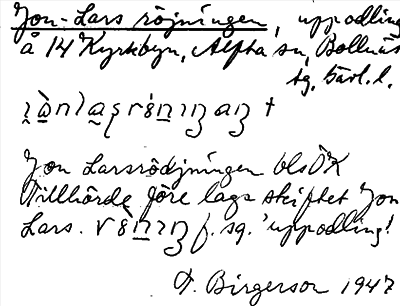 Jon-Lars röjningen, uppodling
å 14 Kyrkbyn, Alfta sn, Bollnäs
tg. Gävl. l.
Jon Larsrödjningen blsÖK
Tillhörde före laga skiftet Jon
Lars. f. sg. 'uppodling'
Birgerson 1947